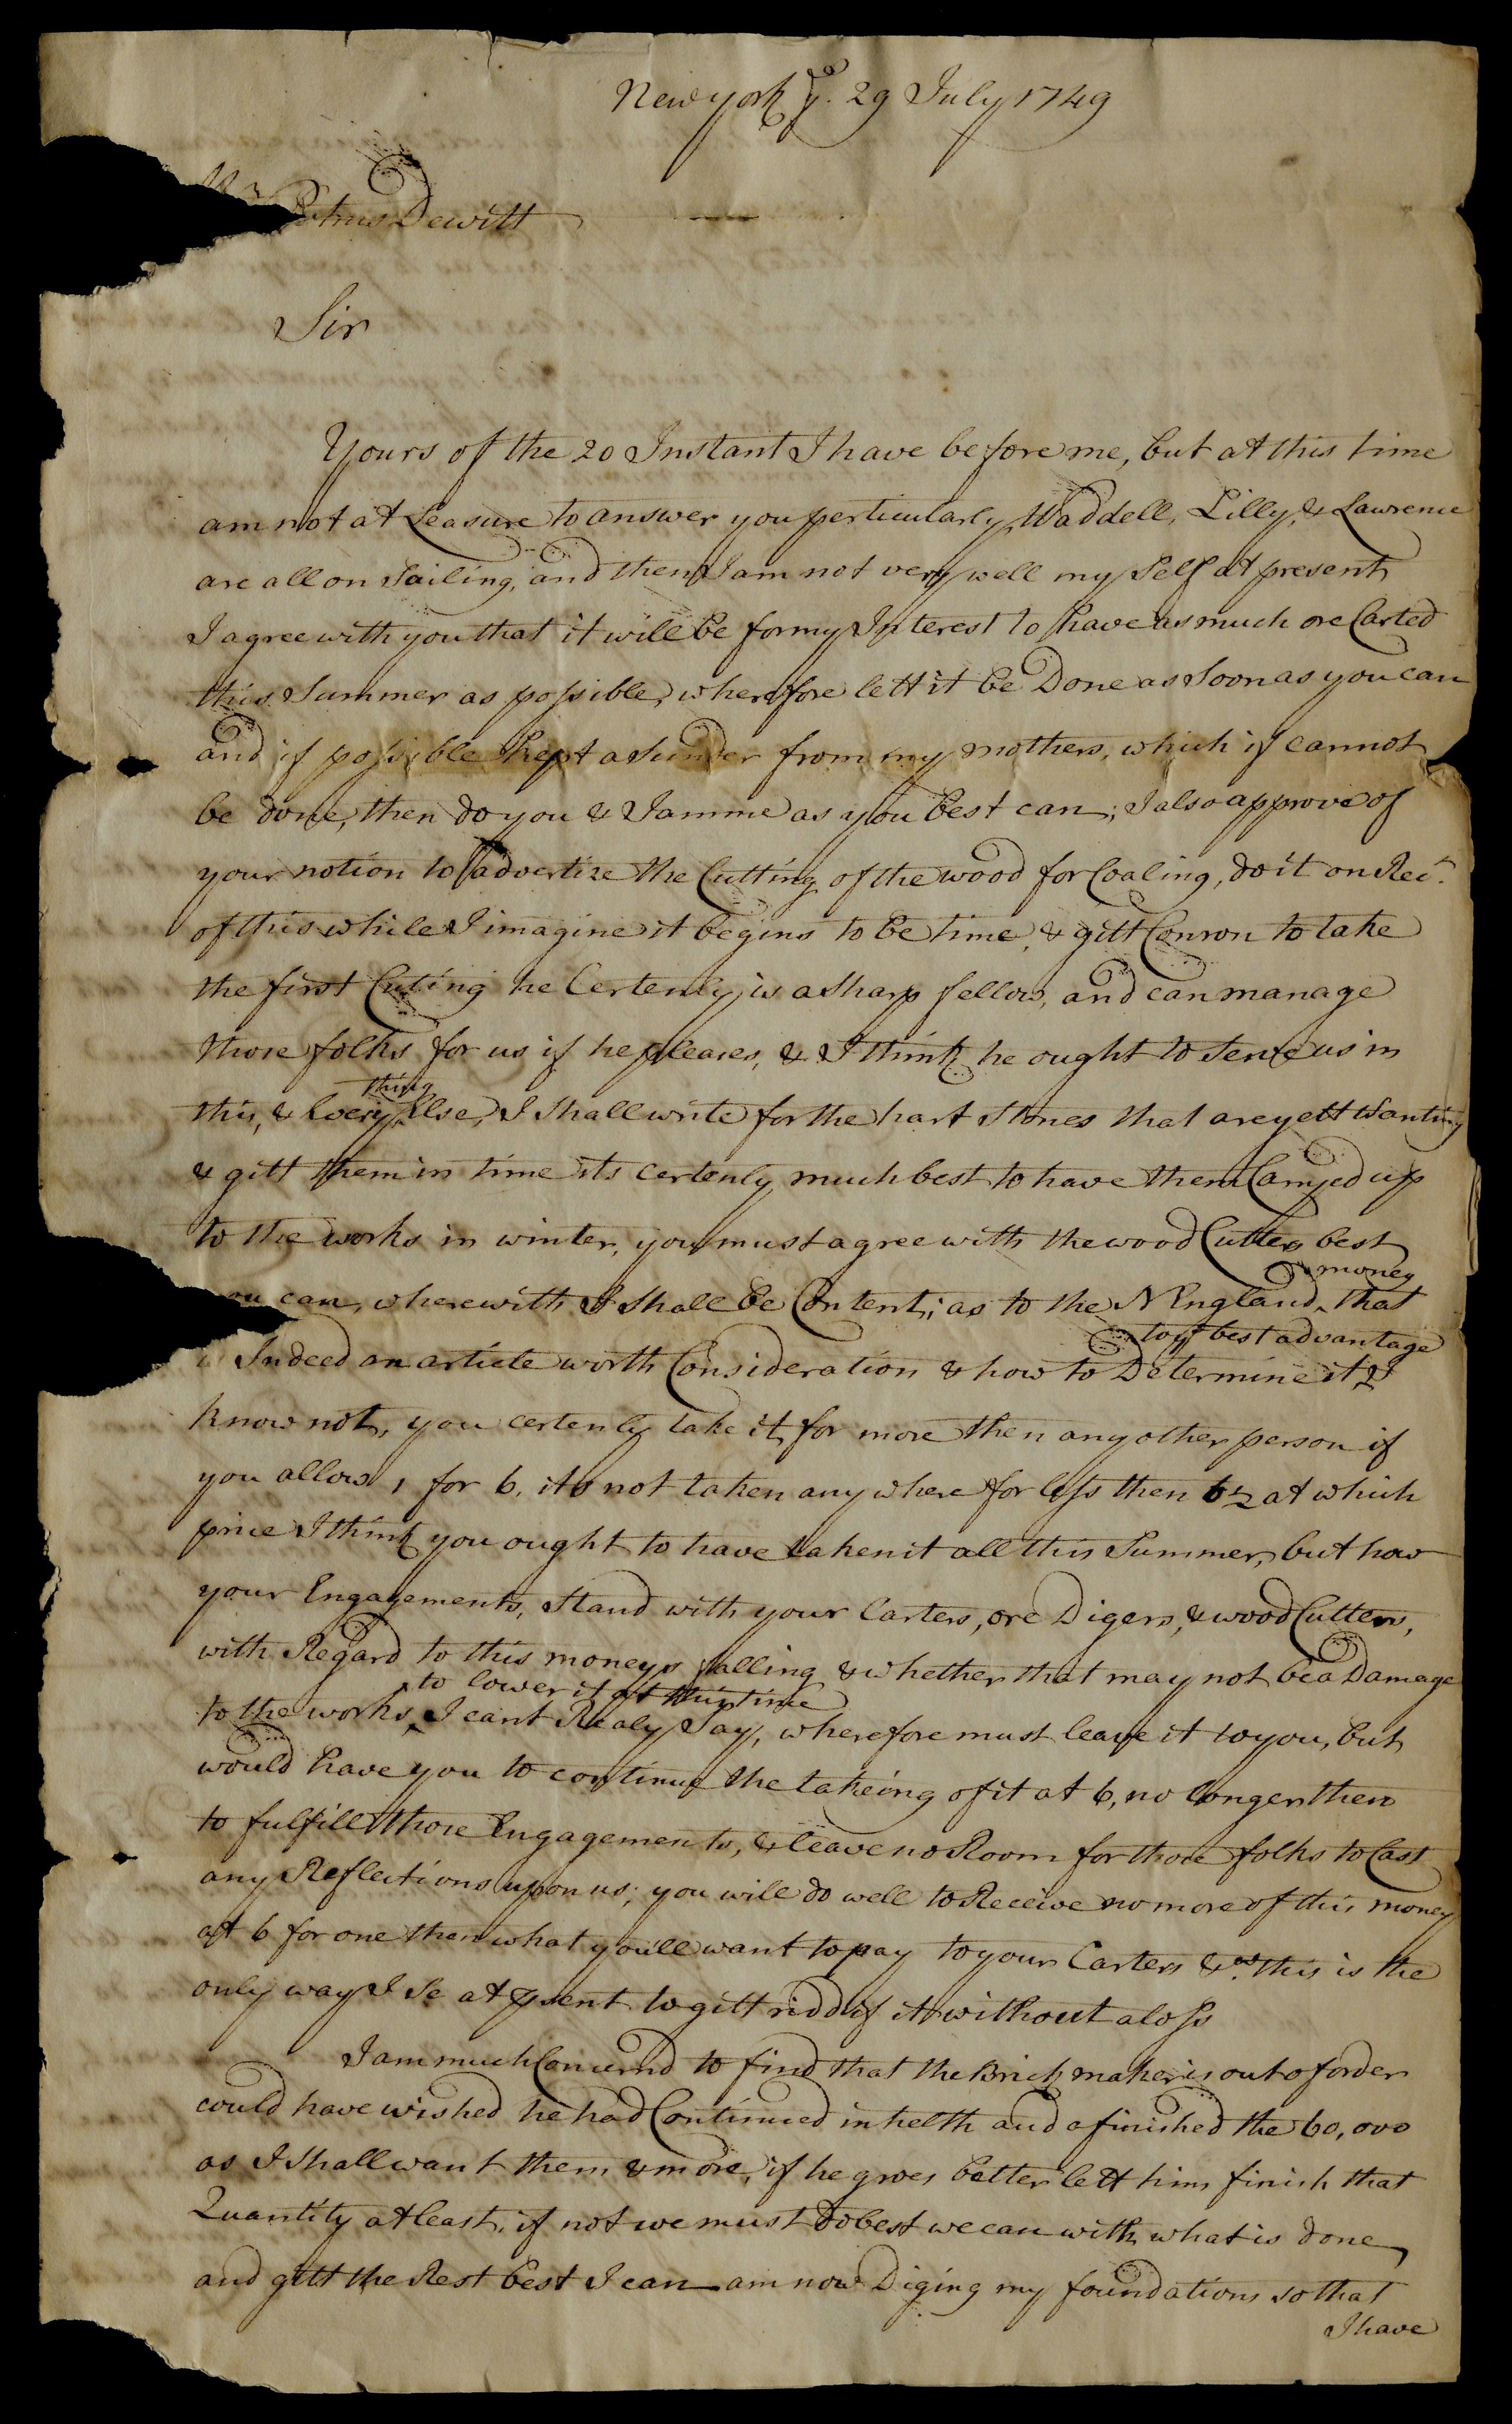 New york ye. 29 July 1749
Mr Petrus Dewitt
Sir
Yours of the 20 Instant I have before me, but at this time
am not at Leasure to answer you perticularly, Waddell, Lilly, & Lawrence
are all on Sailing, and then I am not very well my Self at present,
I agree with you that it will be for my Interest to have as much ore Carted
this Summer as possible, wherefore lett it be Done as Soon as you can
and if possible kept a Sunder from my mothers, which if cannot
be done, then do you & Jamme as you best can; I also approve of
your notion to advertize the Cutting of the wood for Coaling, do it on Rect.
of this while I imagine it begins to be time, & gitt Conron to take
the first Cuting he Certenly is a Sharp fellow, and can manage
those folks for us if he pleases, & I think he ought to Serve us in
this, & Every thing Else, I Shall write for the hart Stones that are yett Wanting
& gitt them in time its certenly much best to have them Carryed up
to the works in winter, you must agree with the wood Cutters best
you can, wherewith I Shall be Content; as to the N England money that
is Indeed an article worth Consideration & how to Determine it to ye best advantage I
know not, you certenly take it for more then any other person if
you allow 1 for 6, its not taken any where for less then 6½ at which
price I think you ought to have taken it all this Summer, but how
your Engagements, Stand with your Carters, ore Digers, & wood Cutters,
with Regard to this moneys falling & whether that may not be a Damage
to the works to lower it at this time I cant Realy Say, wherefore must leave it to you, but
would have you to continue the takeing of it at 6, no longer then
to fulfill those Engagements, & leave no Room for those folks to Cast
any Reflections upon us; you will do well to Receive no more of this money
at 6 for one then what you'll want to pay to your Carters &ca. this is the
only way I Se at psent to gitt ridd of it without a loss
I am much Concernd to find that the Brick maker is out of order
could have wished he had Continued in helth and a finished the 60,000
as I Shall want them & more, if he grows better lett him finish that
Quantity at least, if not we must Do best we can with what is done,
and gitt the Rest best I can am now Diging my foundations so that
I have